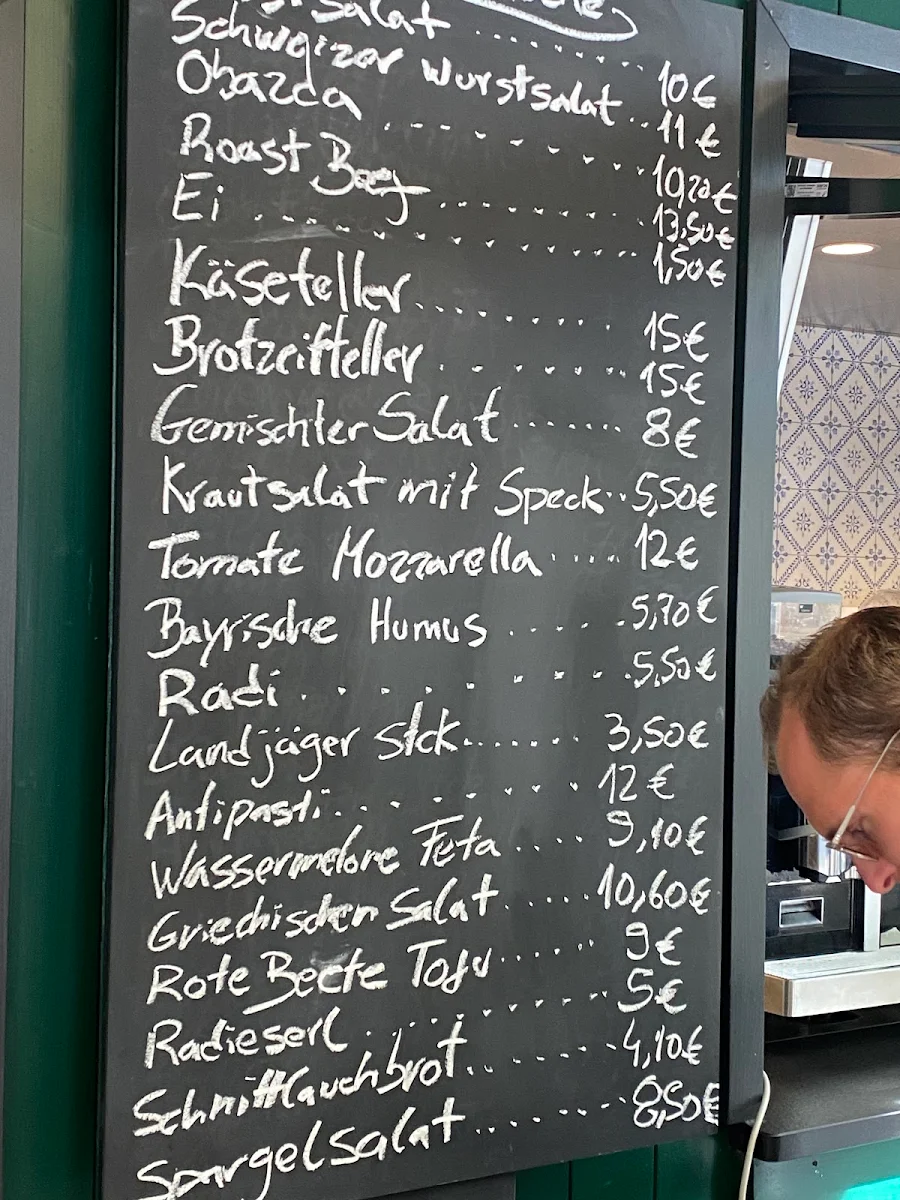 salat ........ 10€
Schweizer Wurstsalat .. 11€
Obazda ........ 10,20€
Roast Beef ........ 13,50€
Ei ........ 1,50€
Käseteller ........ 15€
Brotzeitteller ........ 15€
Gemischter Salat ....... 8€
Krautsalat mit Speck .. 5,50€
Tomate Mozzarella .... 12€
Bayrische Humus ..... 5,70€
Radi ........ 5,50€
Landjäger stck ....... 3,50€
Antipasti ....... 12€
Wassermelone Feta .... 9,10€
Griechischen Salat ..... 10,60€
Rote Beete Tofu ..... 9€
Radieserl ........ 5€
Schnittlauchbrot ...... 4,10€
Spargelsalat ....... 8,50€